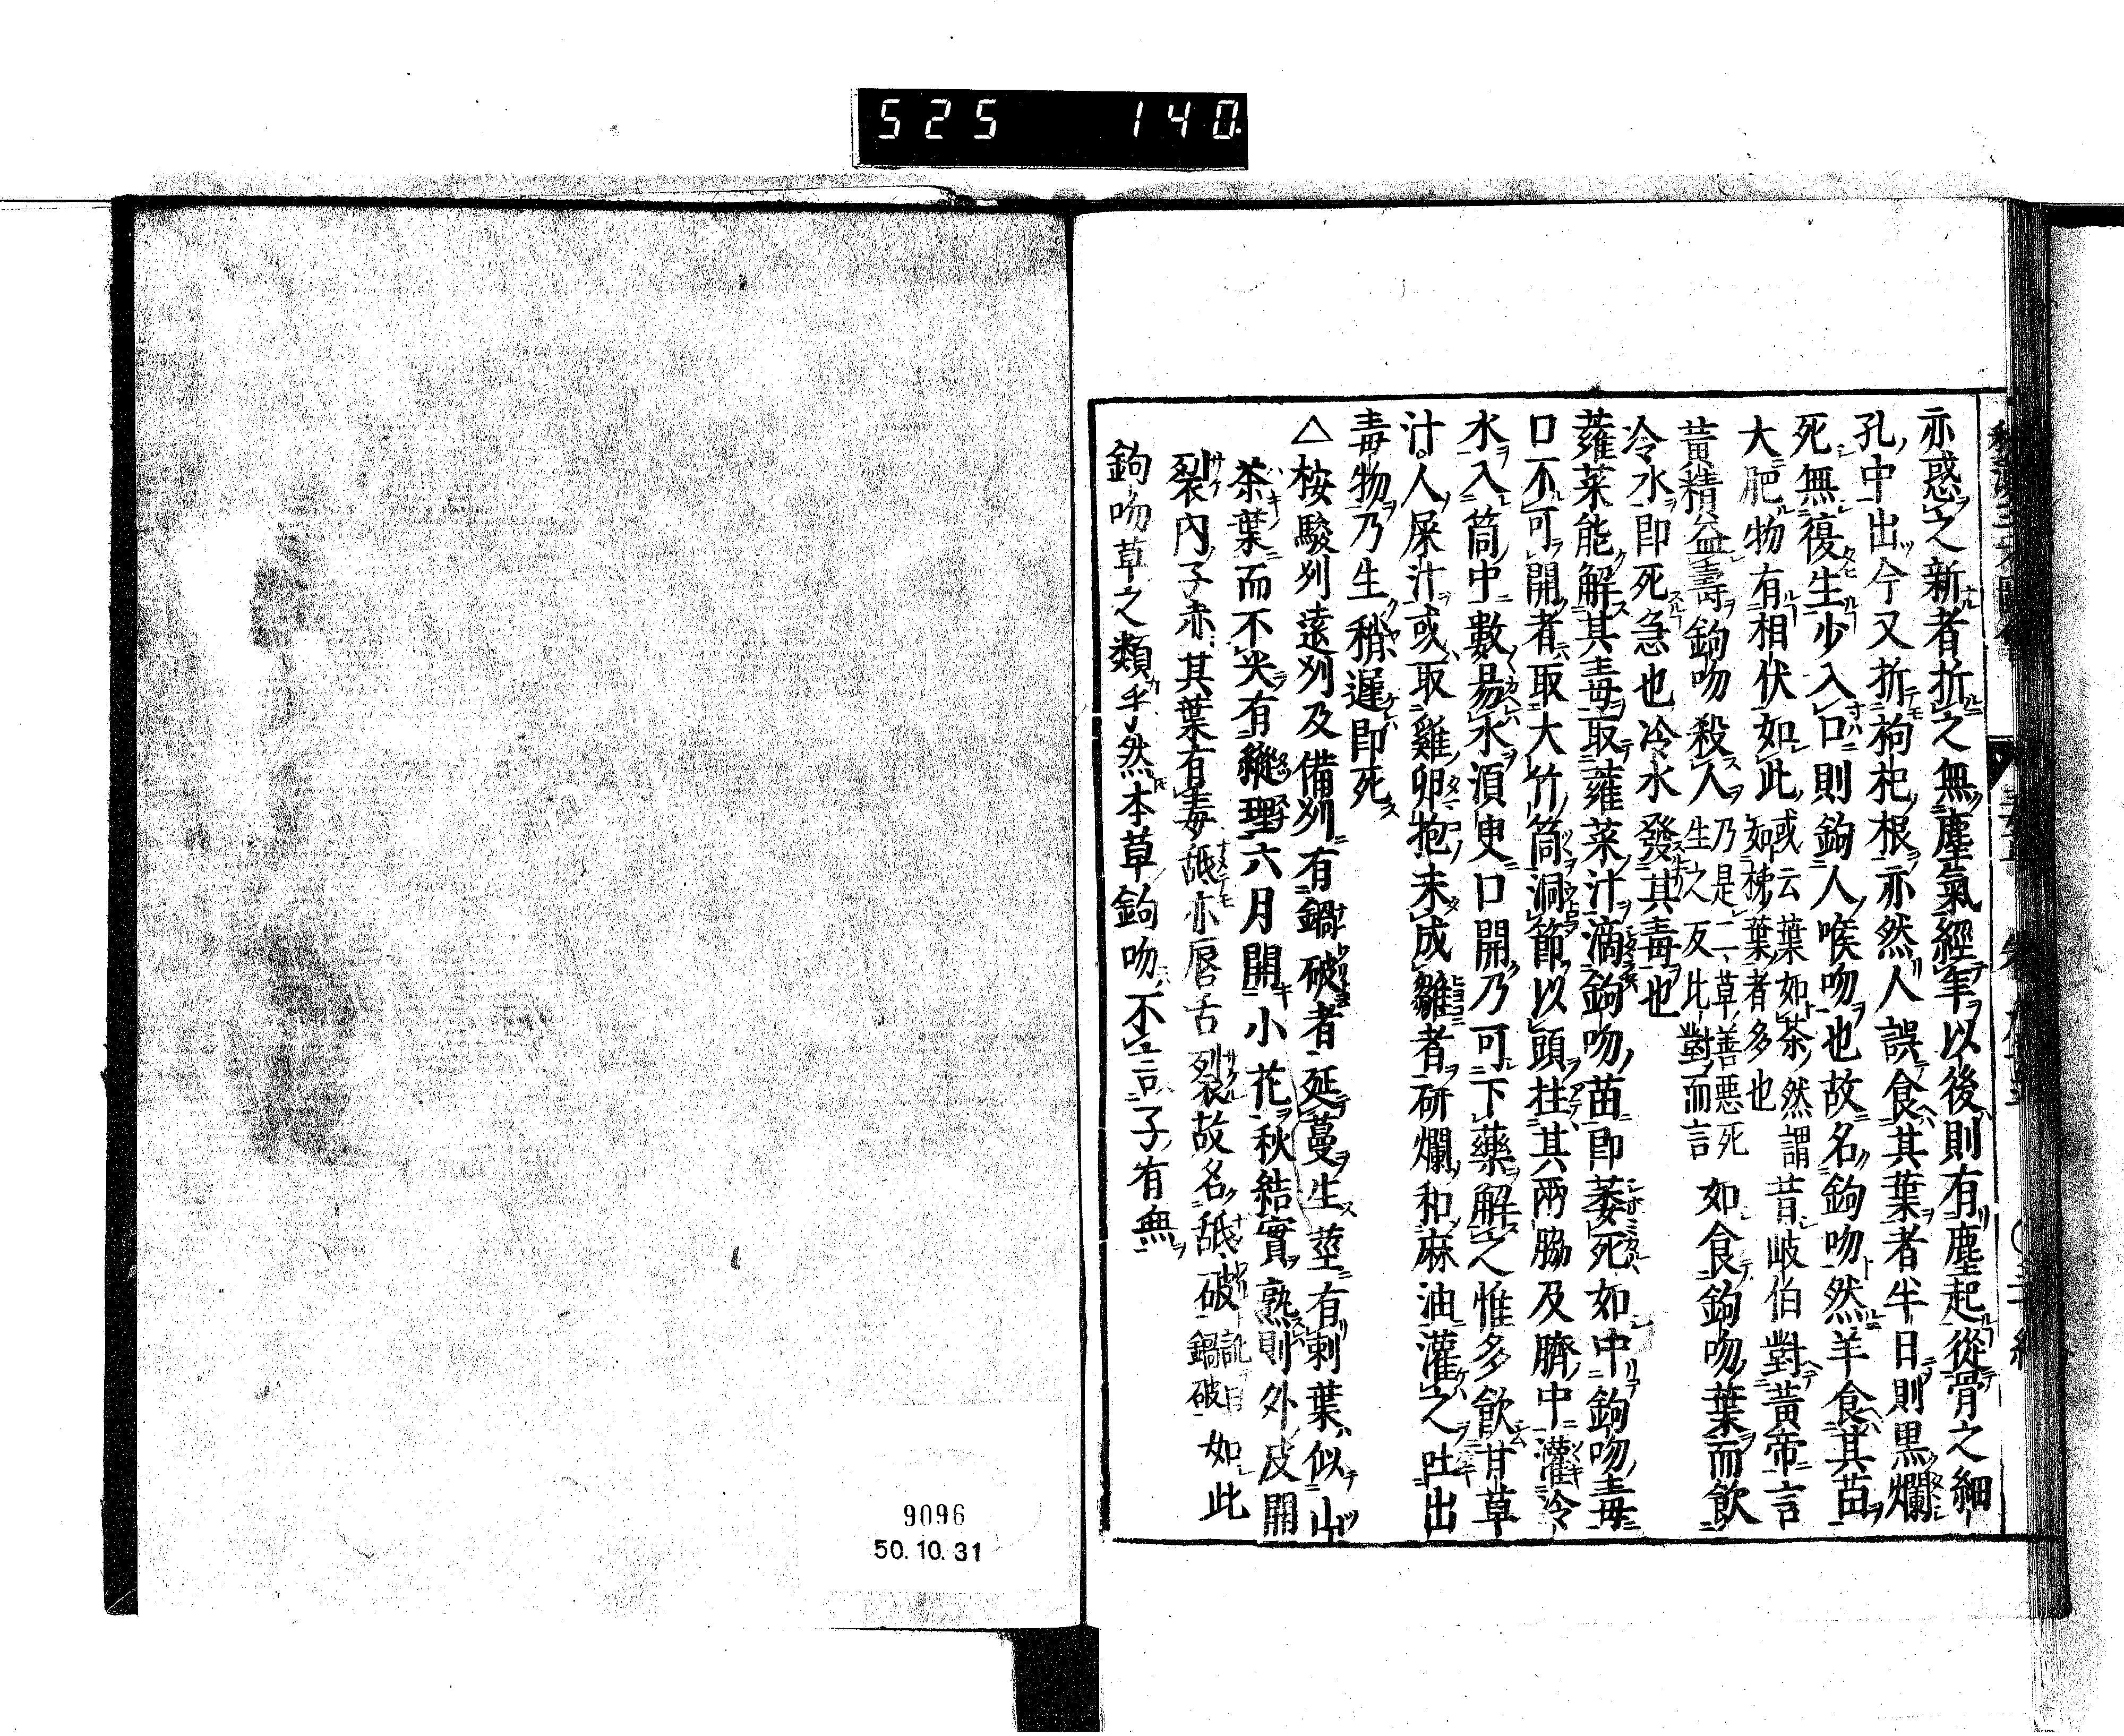 525 140
亦惑之新者折之無塵氣經年以後則有塵起從骨之細
孔中出今又折枸杞根亦然人誤食其葉者半日則黒爛
死無復生少入口則鉤人喉吻也故名鉤吻然羊食其苗
大肥物有相伏如此或云葉如茶然謂昔岐伯對黃帝言
如柿葉者多也
黃精益壽鉤吻殺人乃是二草善悪死如食鉤吻葉而飲
生之反此對而言
冷水即死急也冷水發其毒也
蕹菜能解其毒取蕹菜汁滴鉤吻苗即萎死如中鉤吻毒
口不可開者取大竹筒洞節以頭拄其兩脇及臍中灌冷
水入筒中數易水須臾口開乃可下藥解之惟多飲甘草
汁人屎汁或取雞卵抱未成雛者研爛和麻油灌之吐出
毒物乃生稍遲即死
△桉駿州遠州及備州有鍋破者延蔓生莖有刺葉似山
茶葉而不尖有縱理六月開小花秋結實熟則外皮開
裂內子赤其葉有毒舐亦唇舌裂故名舐破訛曰鍋破如此
鉤吻草之類乎然本草鉤吻不言子有無
9096
50.10.31